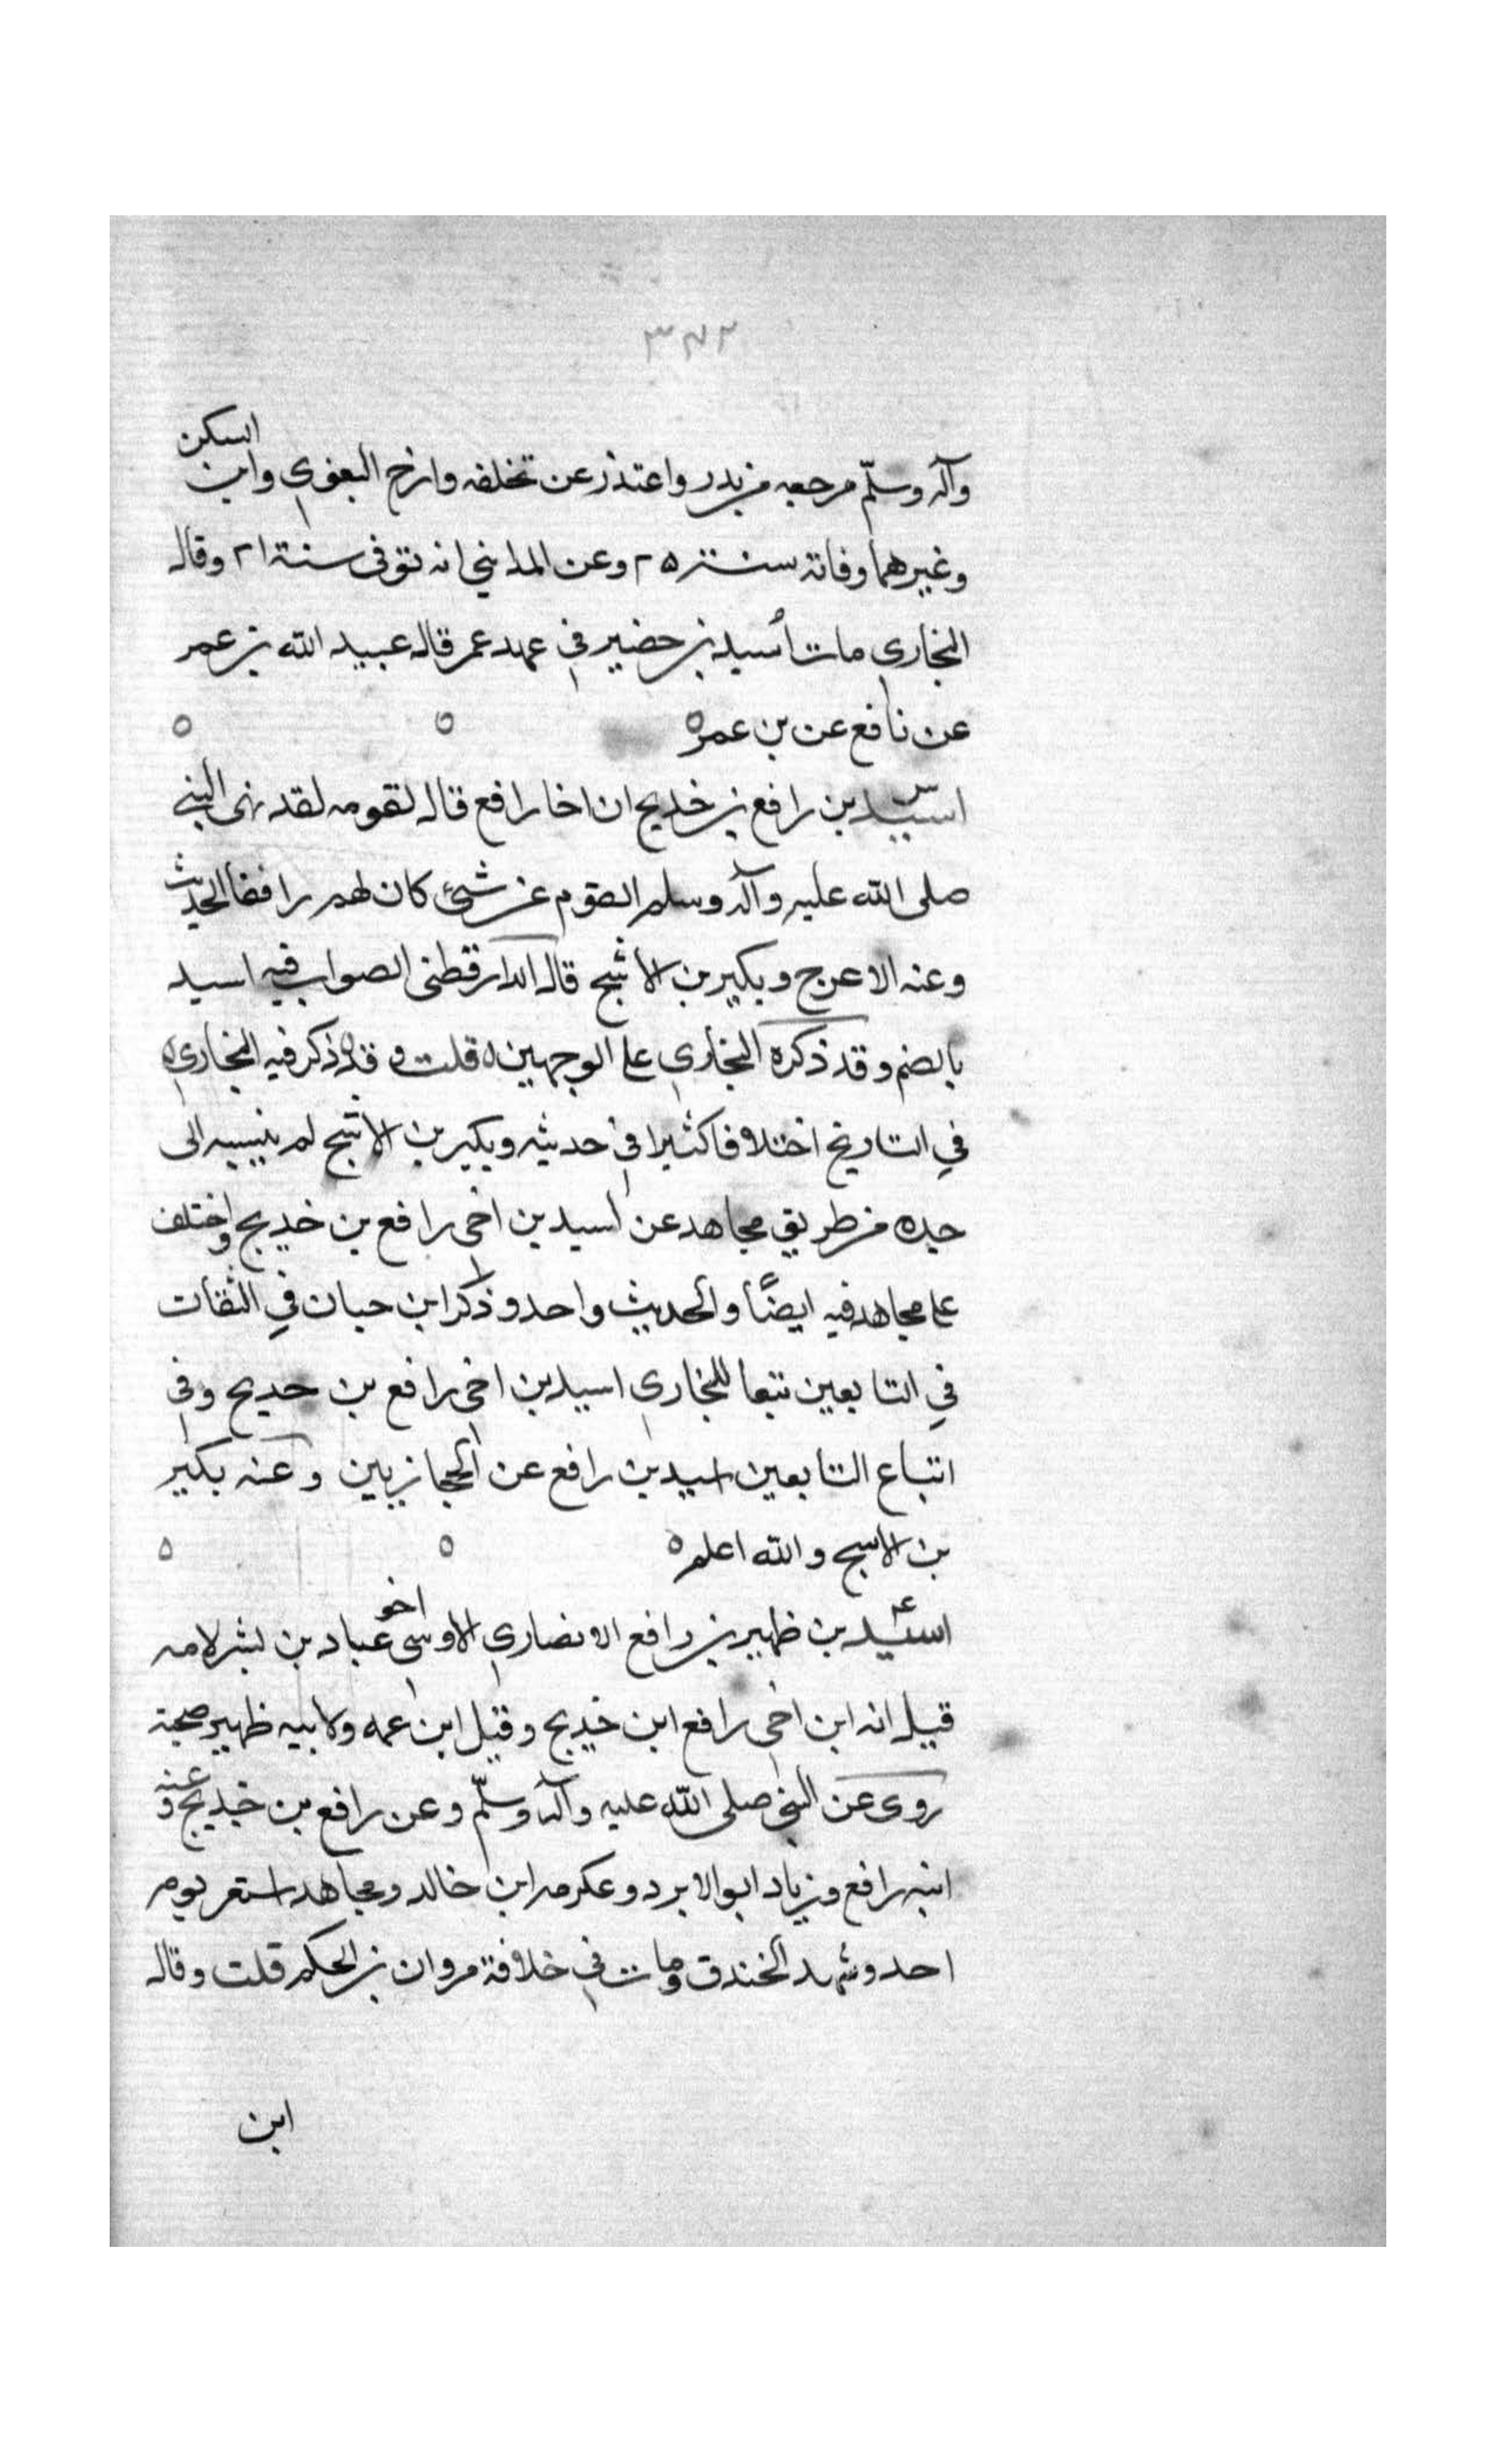 ٣٧٢
وآله وسلّم مرجعه من بدر واعتذر عن تخلفه وارخ البغوي وابن السكن
وغيرهما وفاته سنة ٢٠ وعن المدايني انه توفى سنة ٢١ وقال
البخاري مات أسيد بن حضير في عهد عمر قاله عبيد الله بن عمر
عن نافع عن بن عمره ه ه
س اسيد بن رافع بن خديج ان اخا رافع قال لقومه لقد نهى النبي
صلى الله عليه وآله وسلم القوم عن شئ كان لهم رافقا الحديث
وعنه الاعرج وبكير بن الاشج قال الدارقطنى الصواب فيه اسيد
بالضم وقد ذكره البخاري على الوجهين ه قلت و قد ذكر فيه البخاري
في التاريخ اختلافا كثيرا في حديثه وبكير بن الاشج لم ينسبه الى
جده من طريق مجاهد عن اسيد بن اخى رافع بن خديج واختلف
على مجاهد فيه ايضًا والحديث واحد وذكر ابن حبان في الثقات
في التابعين تبعا للبخاري اسيد بن اخى رافع بن خديج وفي
اتباع التابعين اسيد بن رافع عن الحجازيين وعنه بكير
بن الاشج والله اعلم ه ه ه
عـ اسيد بن ظهير بن رافع الانصاري الاوسي اخو عباد بن بشر لامه
قيل انه ابن اخى رافع ابن خديج وقيل ابن عمه ولابيه ظهير صحبة
روى عن النبي صلى الله عليه وآله وسلّم وعن رافع بن خديج وعنه
ابنه رافع وزياد ابو الابرد وعكرمه ابن خالد ومجاهد استصغر يوم
احد وشهد الخندق ومات في خلافة مروان بن الحكم قلت وقال
ابن